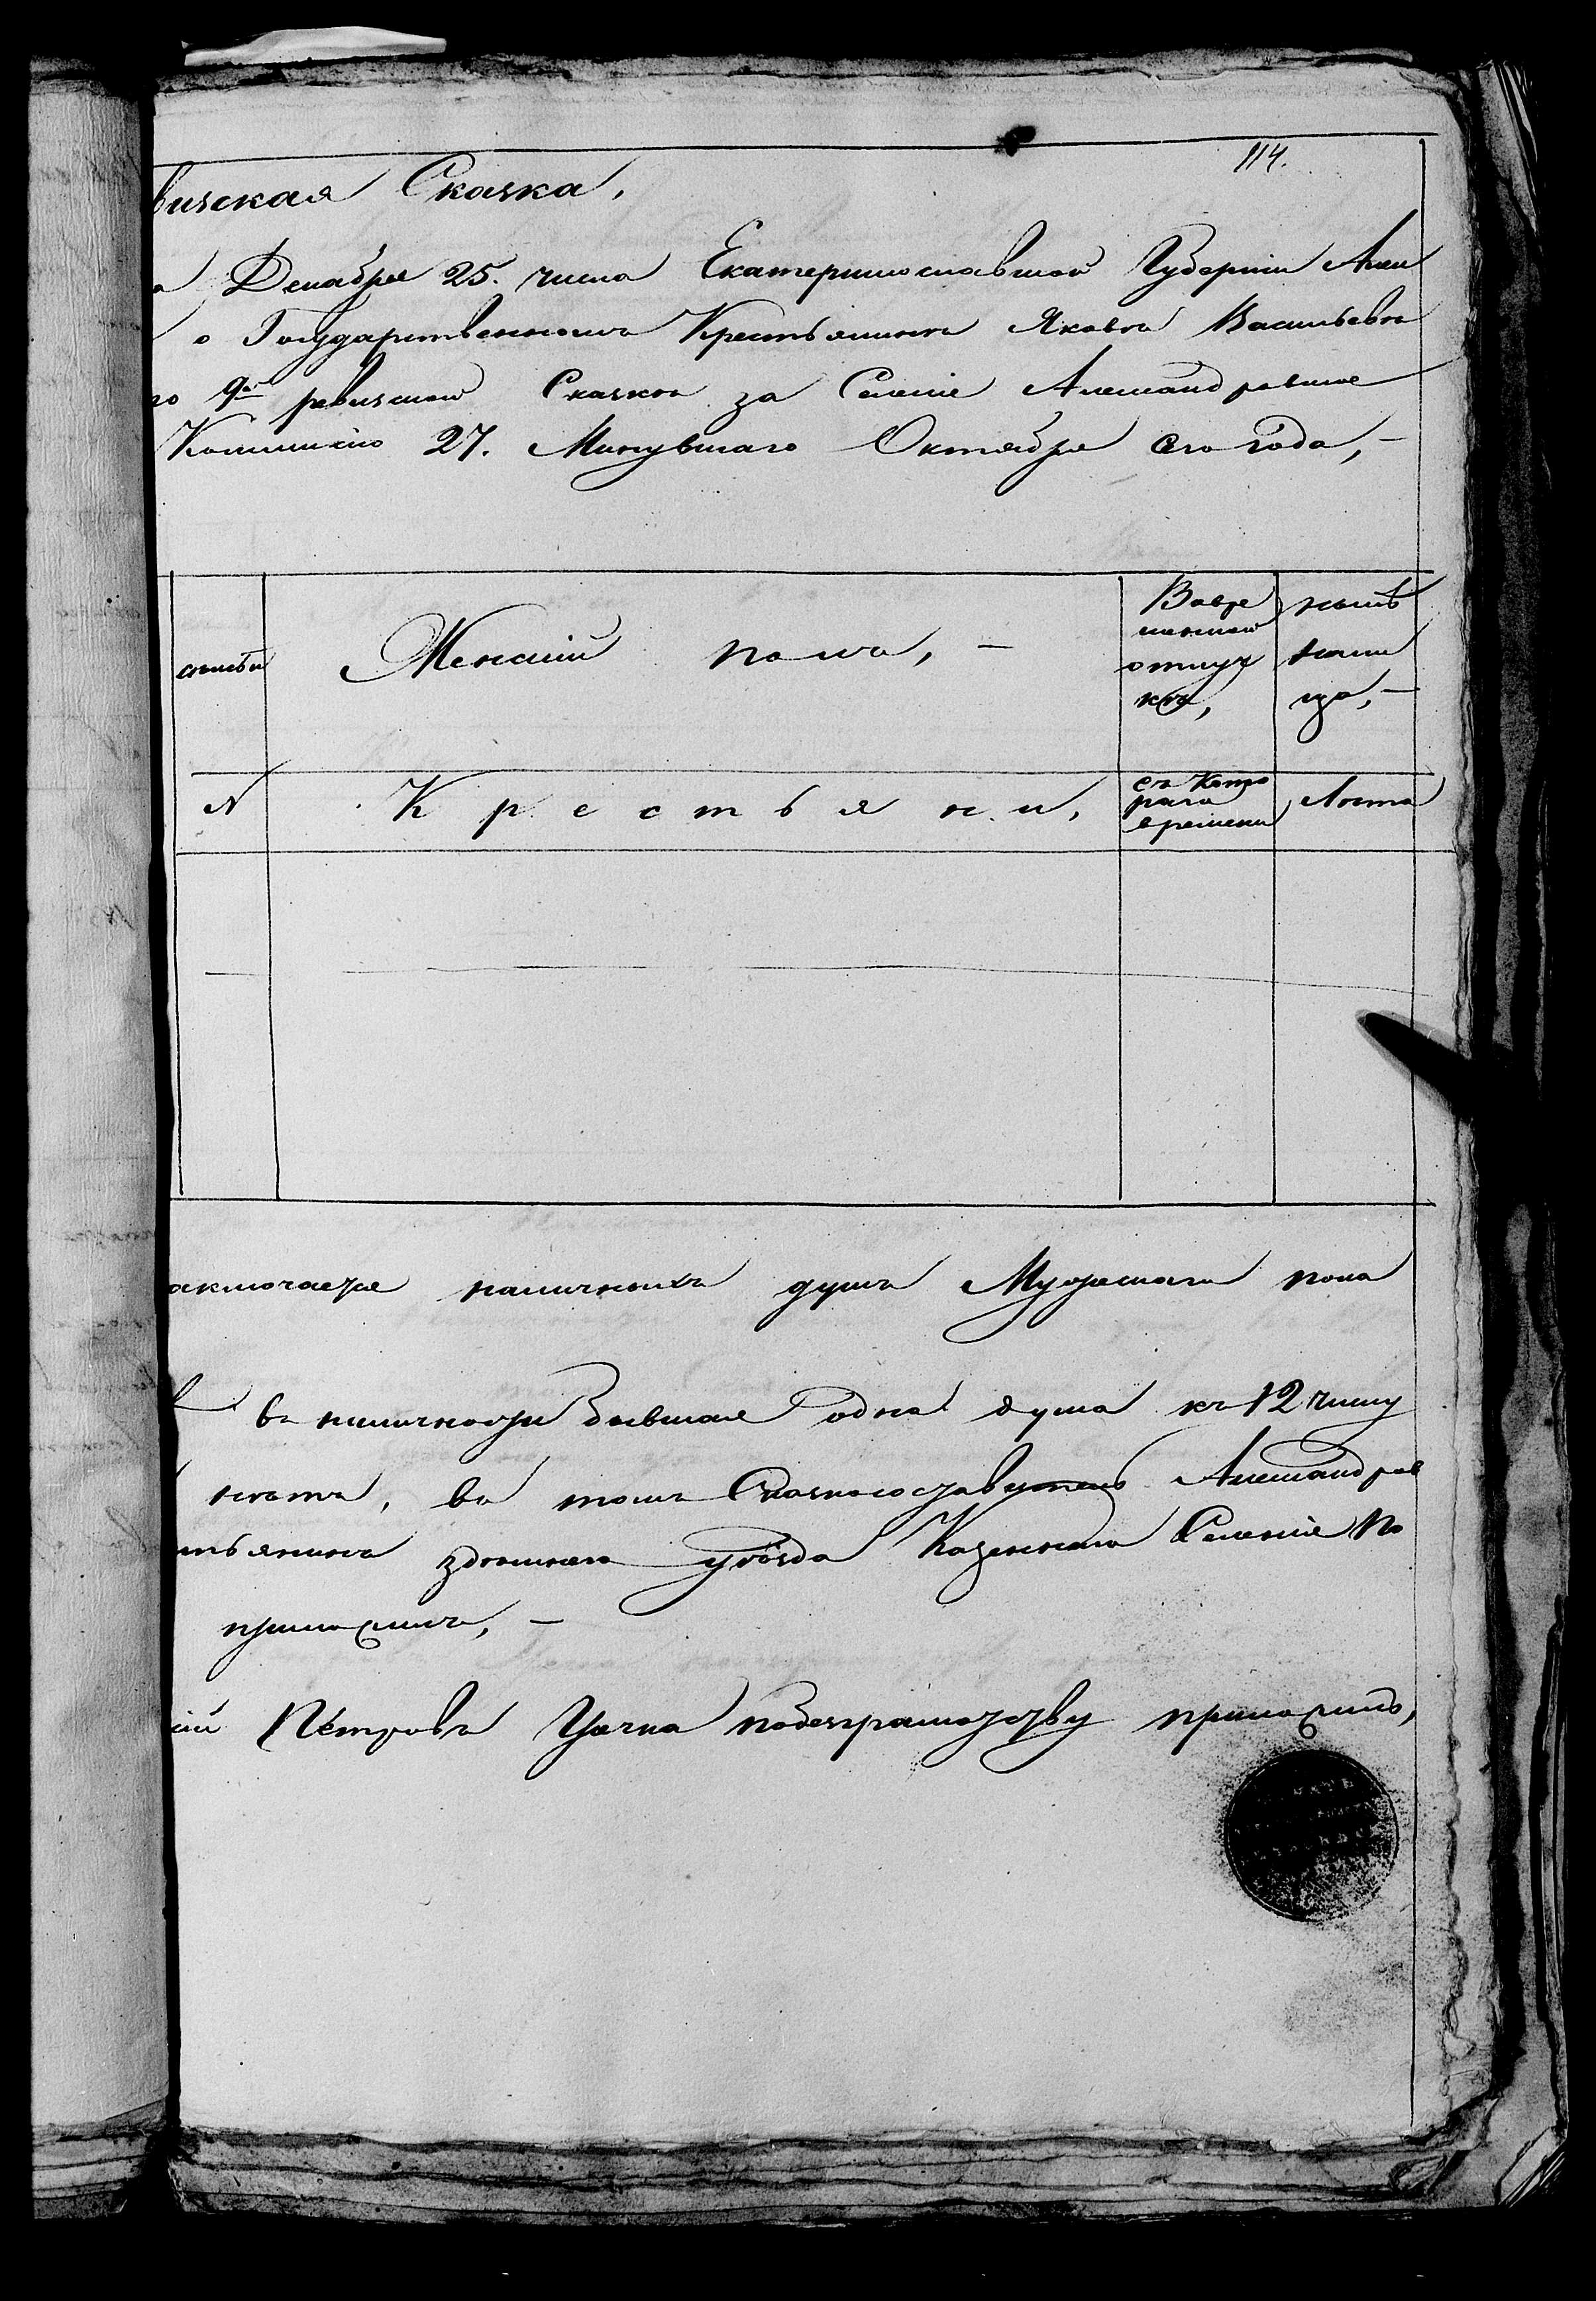 114.
визская Сказка,
а Декабря 25. числа Екатеринославской Губернии Алек
о Государственномъ Крестьянинѣ Яковѣ Васильевѣ
по 9й ревизской Сказкѣ за Селеніе Александровское
Коммисію 27. Минувшаго Октября сего года, —
семьи
Женскій полъ, —
Вовре
менной
отлуч
кѣ,
нынѣ
нали
цо, —
N
Крестьяни,
съ Кото
раго
времени
Лѣта
аключается наличныхъ душъ Мужескаго пола
въ наличности бывшая одна душа къ 12 числу
нѣтъ, въ томъ Сказкосоставитель Александров
тьянинъ здѣшняго уѣзда Казеннаго Селенія По
приложилъ, —
ій Петровъ Цачка побезграмотству приложилъ,